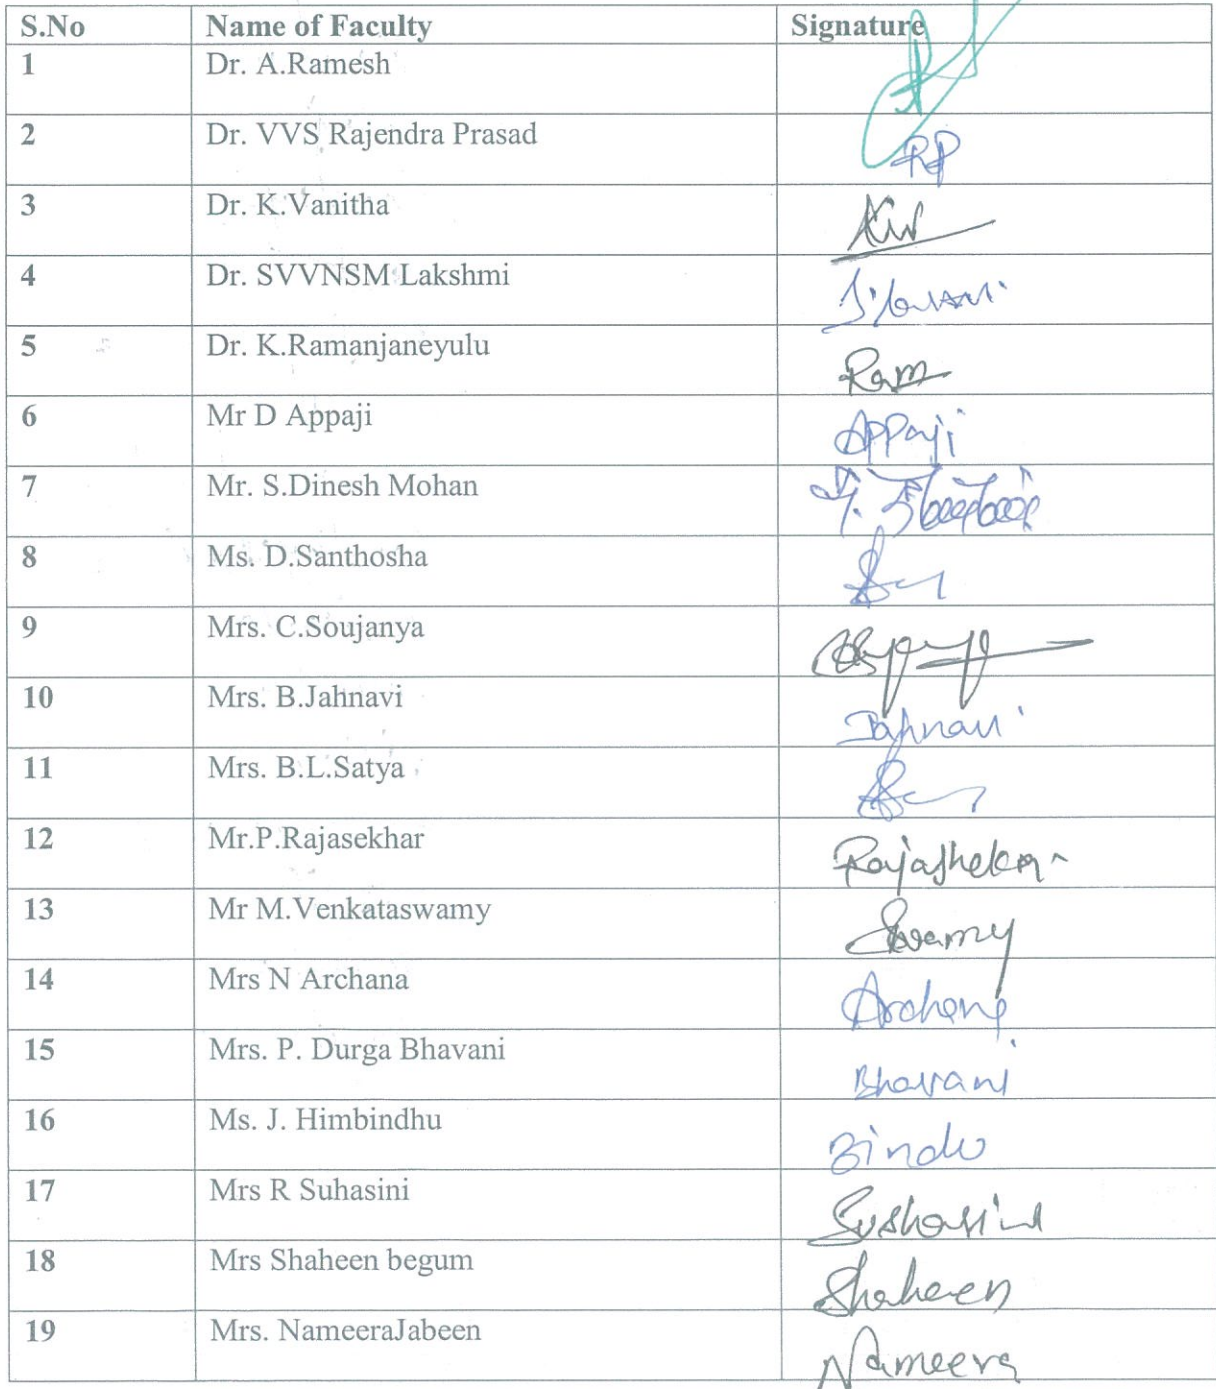 S.No Name of Faculty Signature
1 Dr. A.Ramesh
2 Dr. VVS Rajendra Prasad RP
3 Dr. K.Vanitha
4 Dr. SVVNSM Lakshmi
5 Dr. K.Ramanjaneyulu Ram
6 Mr D Appaji Appaji
7 Mr. S.Dinesh Mohan
8 Ms. D.Santhosha
9 Mrs. C.Soujanya
10 Mrs. B.Jahnavi Jahnavi
11 Mrs. B.L.Satya
12 Mr.P.Rajasekhar Rajashekar
13 Mr M.Venkataswamy Swamy
14 Mrs N Archana Archana
15 Mrs. P. Durga Bhavani Bhavani
16 Ms. J. Himbindhu Bindu
17 Mrs R Suhasini Sushasini
18 Mrs Shaheen begum Shaheen
19 Mrs. NameeraJabeen Nameera